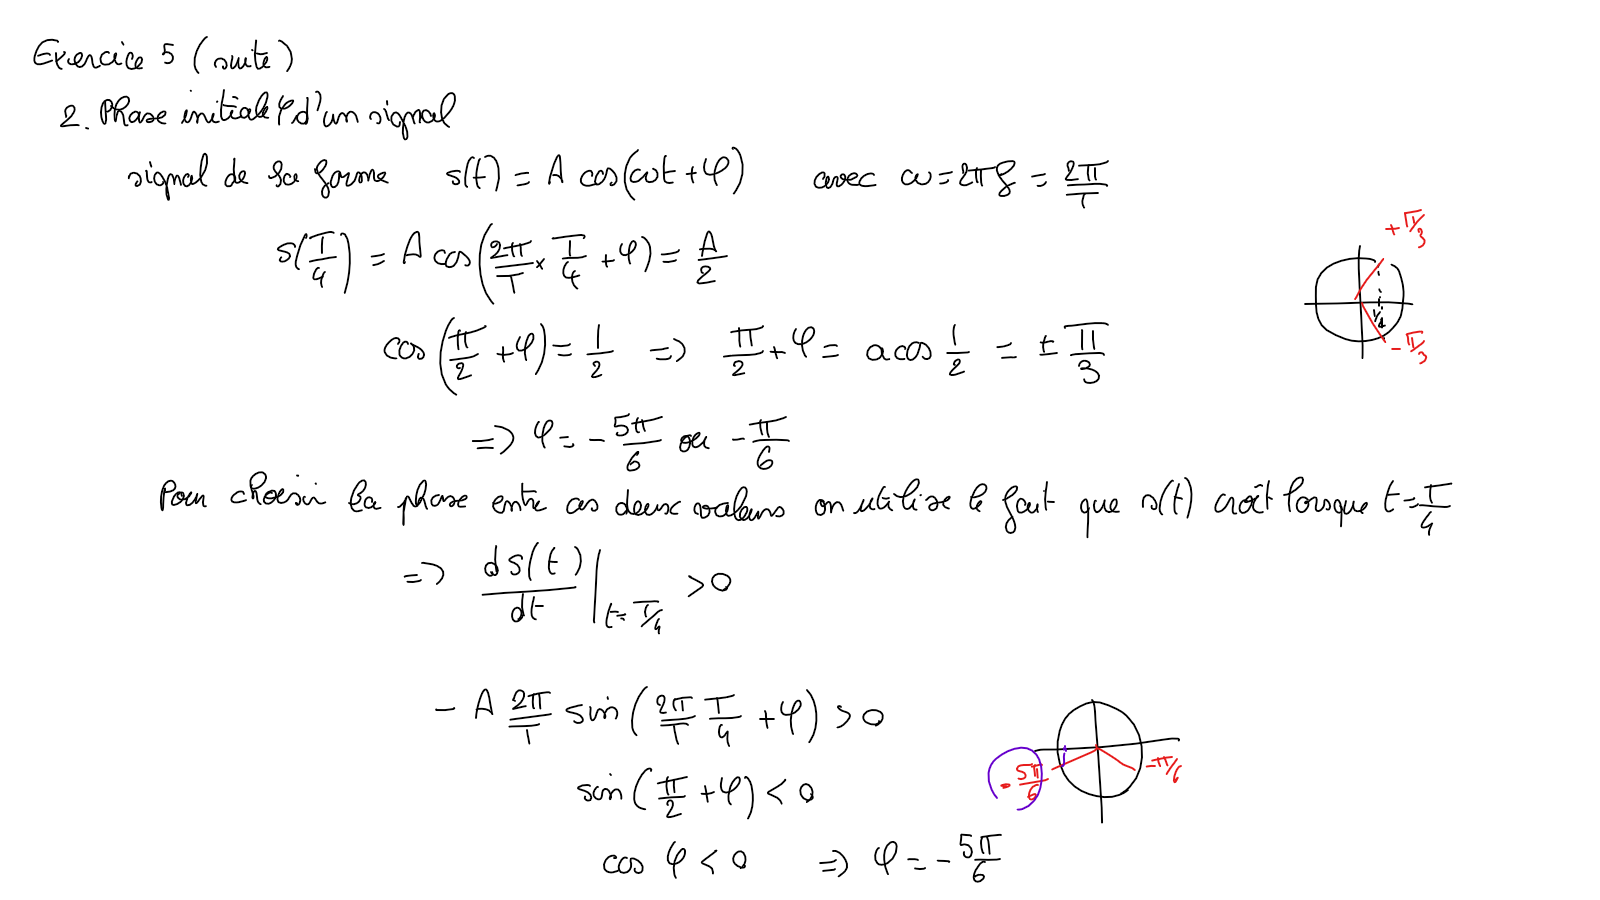 Exercice 5 (suite)
2. Phase initiale φ d'un signal
signal de la forme s(t) = A cos(ωt + φ) avec ω = 2πf = 2π/T
s(T/4) = A cos(2π/T × T/4 + φ) = A/2
+π/3
cos(π/2 + φ) = 1/2 => π/2 + φ = acos 1/2 = ± π/3
1/2
-π/3
=> φ = -5π/6 ou -π/6
Pour choisir la phase entre ces deux valeurs on utilise le fait que s(t) croît lorsque t = T/4
=> ds(t)/dt |t=T/4 > 0
- A 2π/T sin(2π/T T/4 + φ) > 0
-5π/6
-π/6
sin(π/2 + φ) < 0
cos φ < 0 => φ = -5π/6